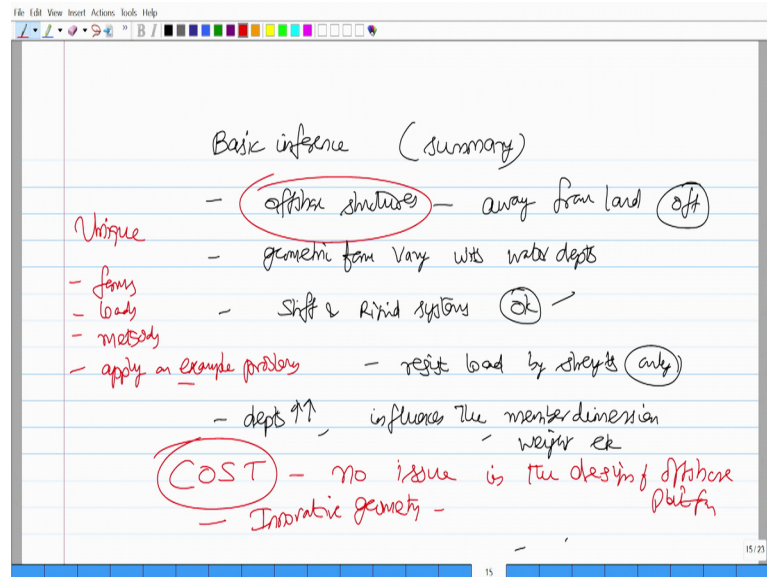 File Edit View Insert Actions Tools Help
B I
Basic inference (summary)
- offshore structures - away from land off
Unique
- geometric form vary with water depth
- forms
- loads
- stiff & Rigid systems ok
- methods
- apply an example problem
- resist load by strength only
- depth ↑↑ influences the member dimension
weight etc
COST - no issue in the design of offshore
platform
- Innovative geometry -
15/23
15